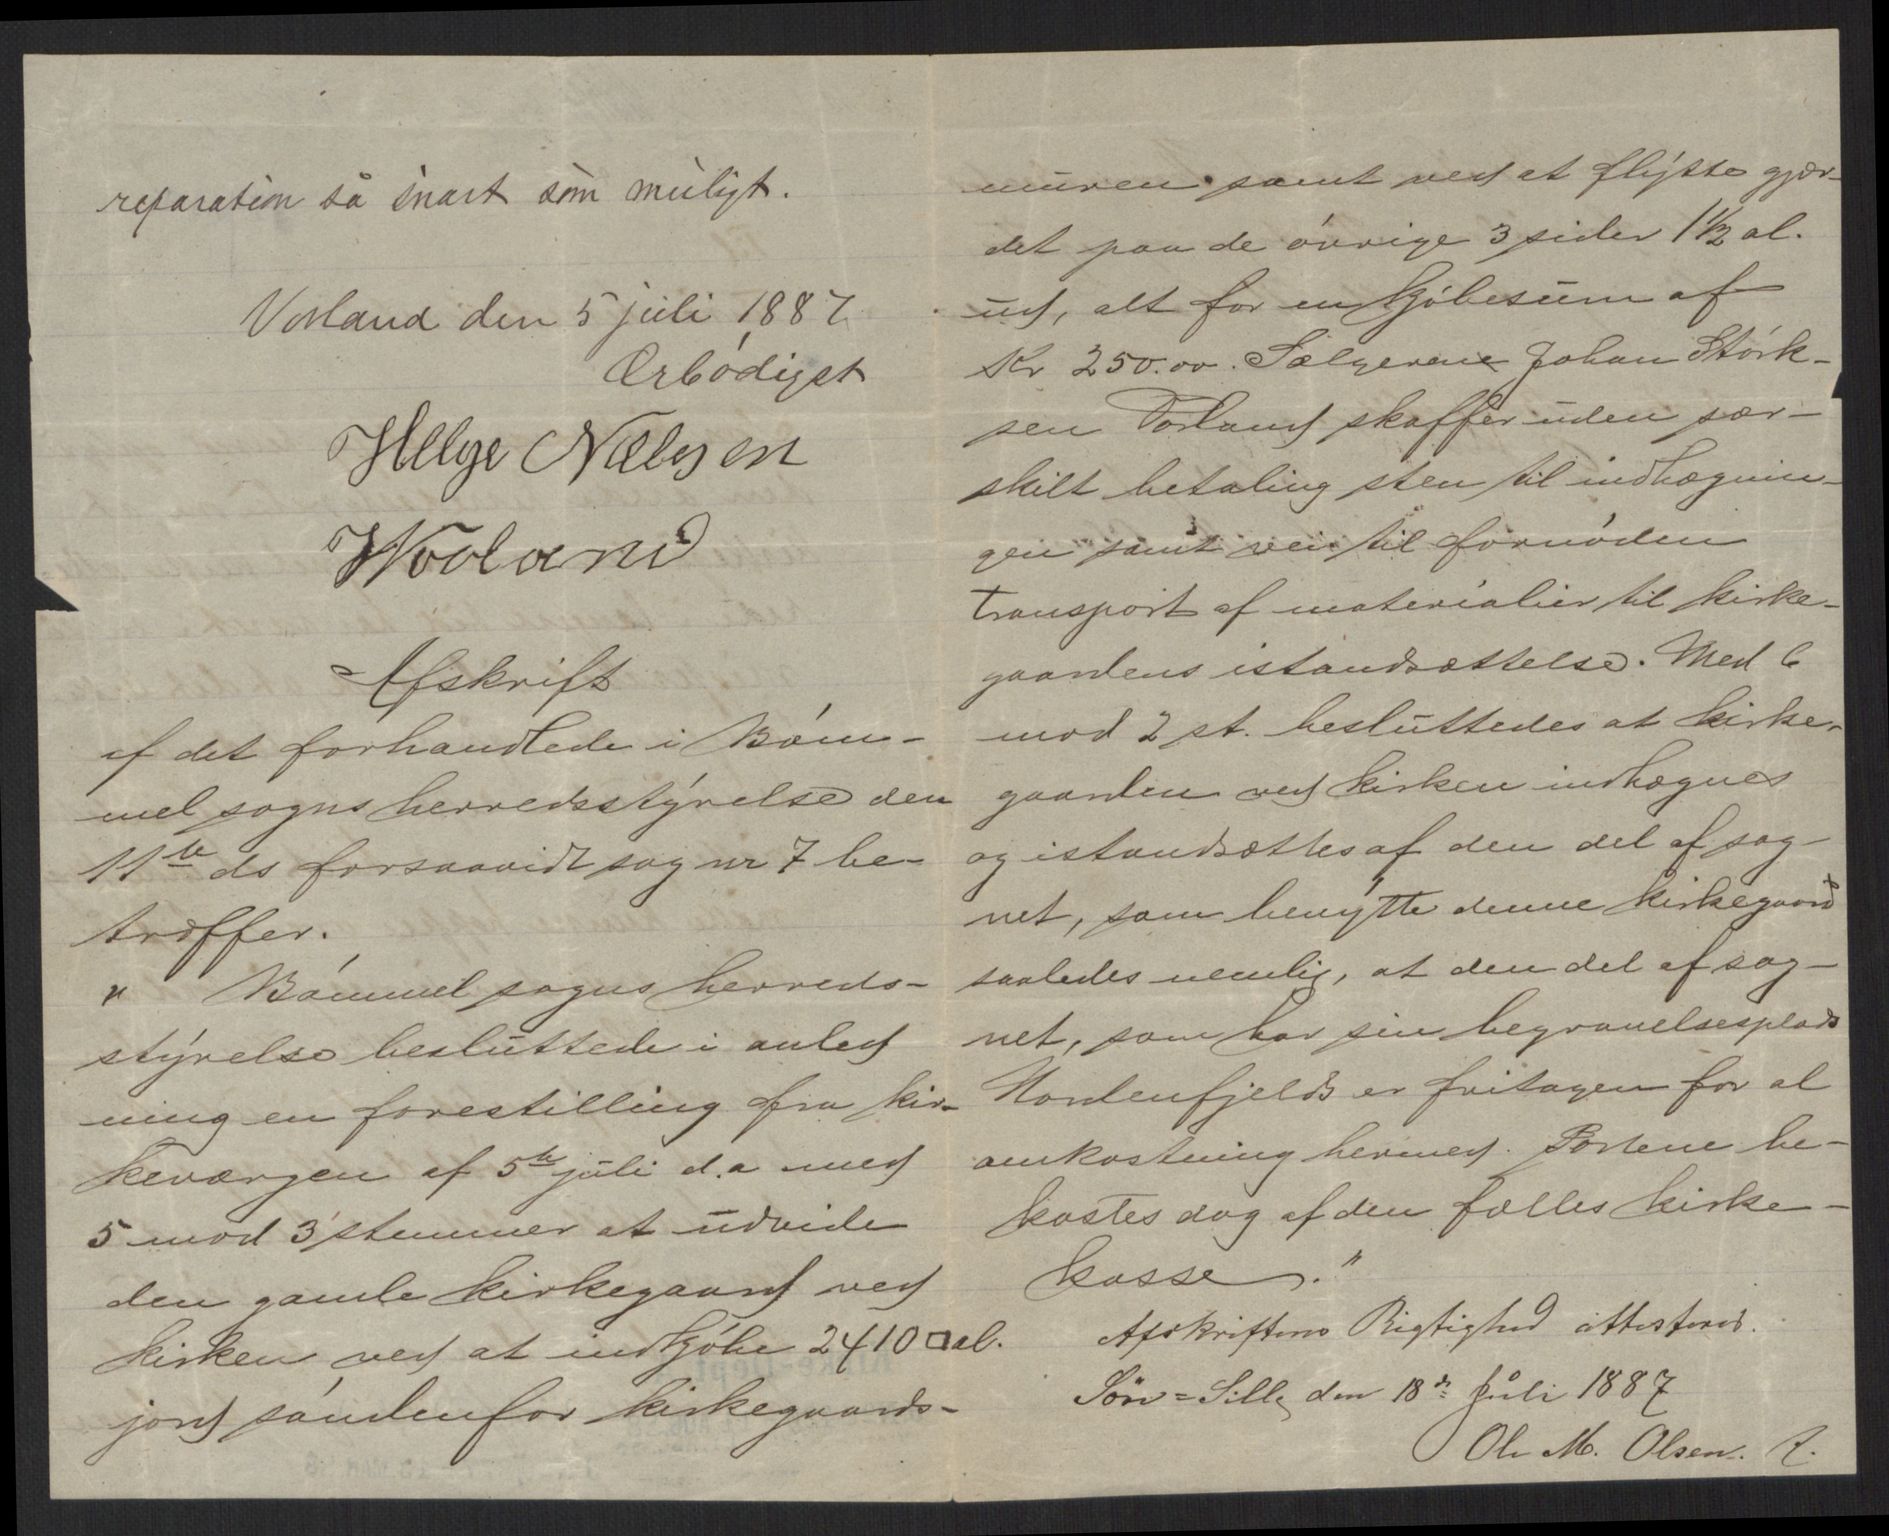 reparation så snart som muligt.
Vorland den 5 juli 1887
Ærbödigst
Helge Nælesen
Wooland
Afskrift
af det forhandlede i Böm-
mel sogns herredsstyrelse den
11te ds forsaavidt sag nr 7 be-
træffer.
" Bömmel sogns herreds-
styrelse besluttede i anled
ning en forestilling fra kir-
keværgen af 5te juli d.a med
5 mod 3 stemmer at udvide
den gamle kirkegaard ved
kirken ved at indkjöbe 2410 □al.
jord söndenfor kirkegaards-
muren samt ved at flytte gjær-
det paa de övrige 3 sider 1½ al.
ud, alt for en kjöbesum af
Kr 250.00. Sælgerene Johan Störk-
sen Vorland skaffer uden sær-
skilt betaling sten til indhægnin-
gen samt vei til fornöden
transport af materialier til kirke-
gaardens istandsættelse. Med 6
mod 2 st. besluttedes at kirke-
gaarden ved kirken indhægnes
og istandsættes af den del af sog-
net, som benytte denne kirkegaard
saaledes nemlig, at den del af sog-
net, som har sin begravelsesplads
Nordenfjelds er fritagen for al
omkostning hermed. Portene be-
kostes dog af den fælles kirke-
kasse."
Afskriftens Rigtighed attesteres.
den 18de Juli 1887
Ole M. Olsen.